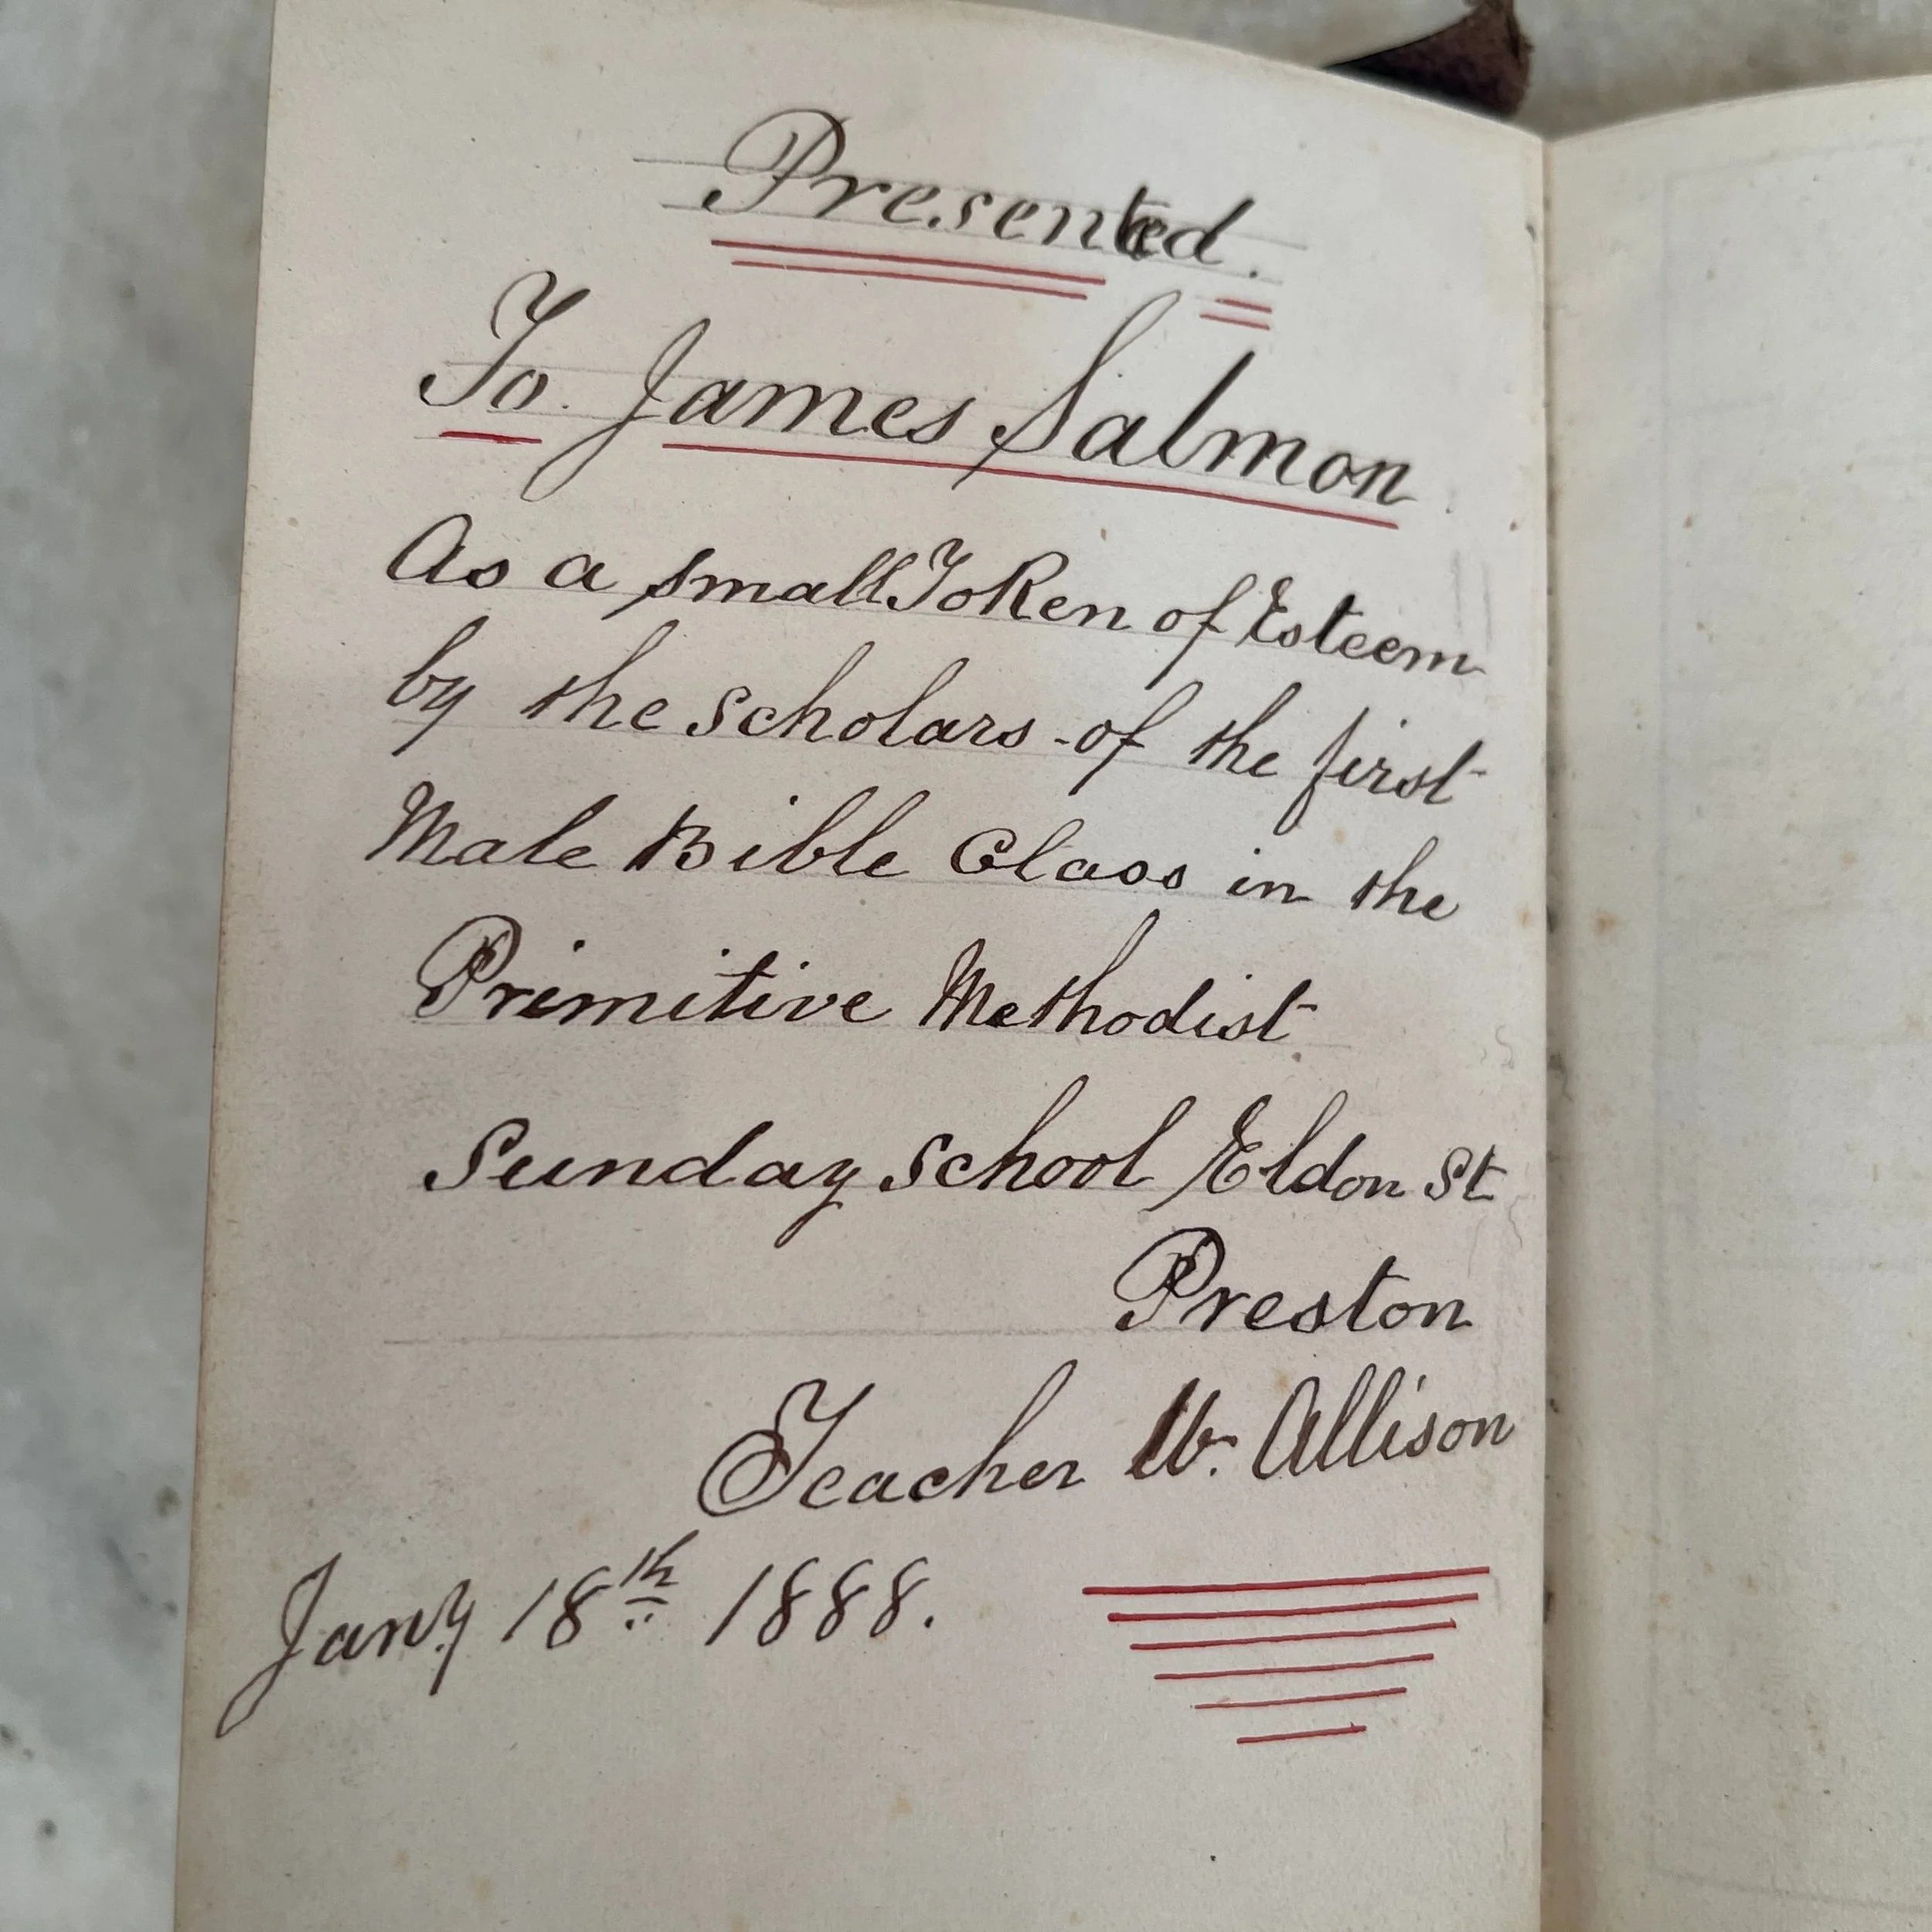 Presented.
To. James Salmon
As a small Token of Esteem
by the scholars of the first
Male Bible Class in the
Primitive Methodist
Sunday School Eldon St
Preston
Teacher W. Allison
Jany 18th 1888.